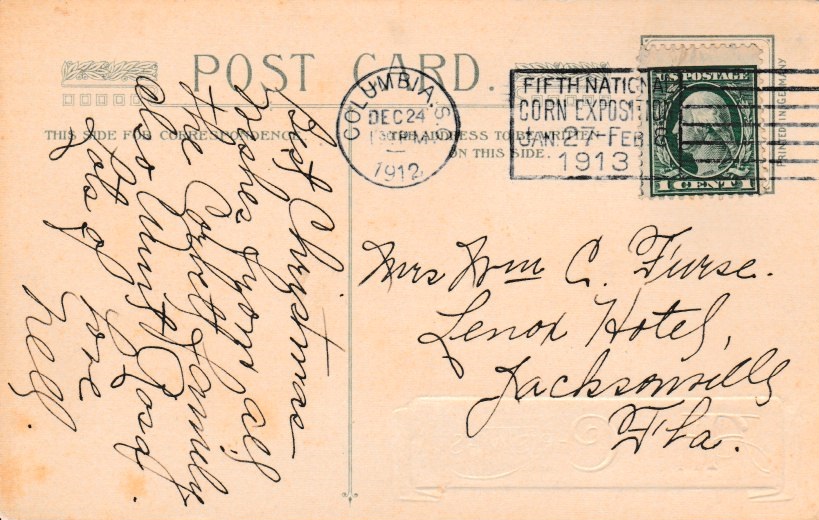 POST CARD.
THIS SIDE FOR CORRESPONDENCE.
THE ADDRESS TO BE WRITTEN
ON THIS SIDE.
PRINTED IN GERMANY
COLUMBIA, S.
DEC 24
PM
1912
FIFTH NATIONAL
CORN EXPOSITION
JAN. 27-FEB
1913
U.S. POSTAGE
1 CENT 1
Best Christmas
wishes from all
the Corbett family
also Aunt Rosa.
Lots of love
Nell.
Mrs Wm C. Furse.
Lenox Hotel,
Jacksonville
Fla.